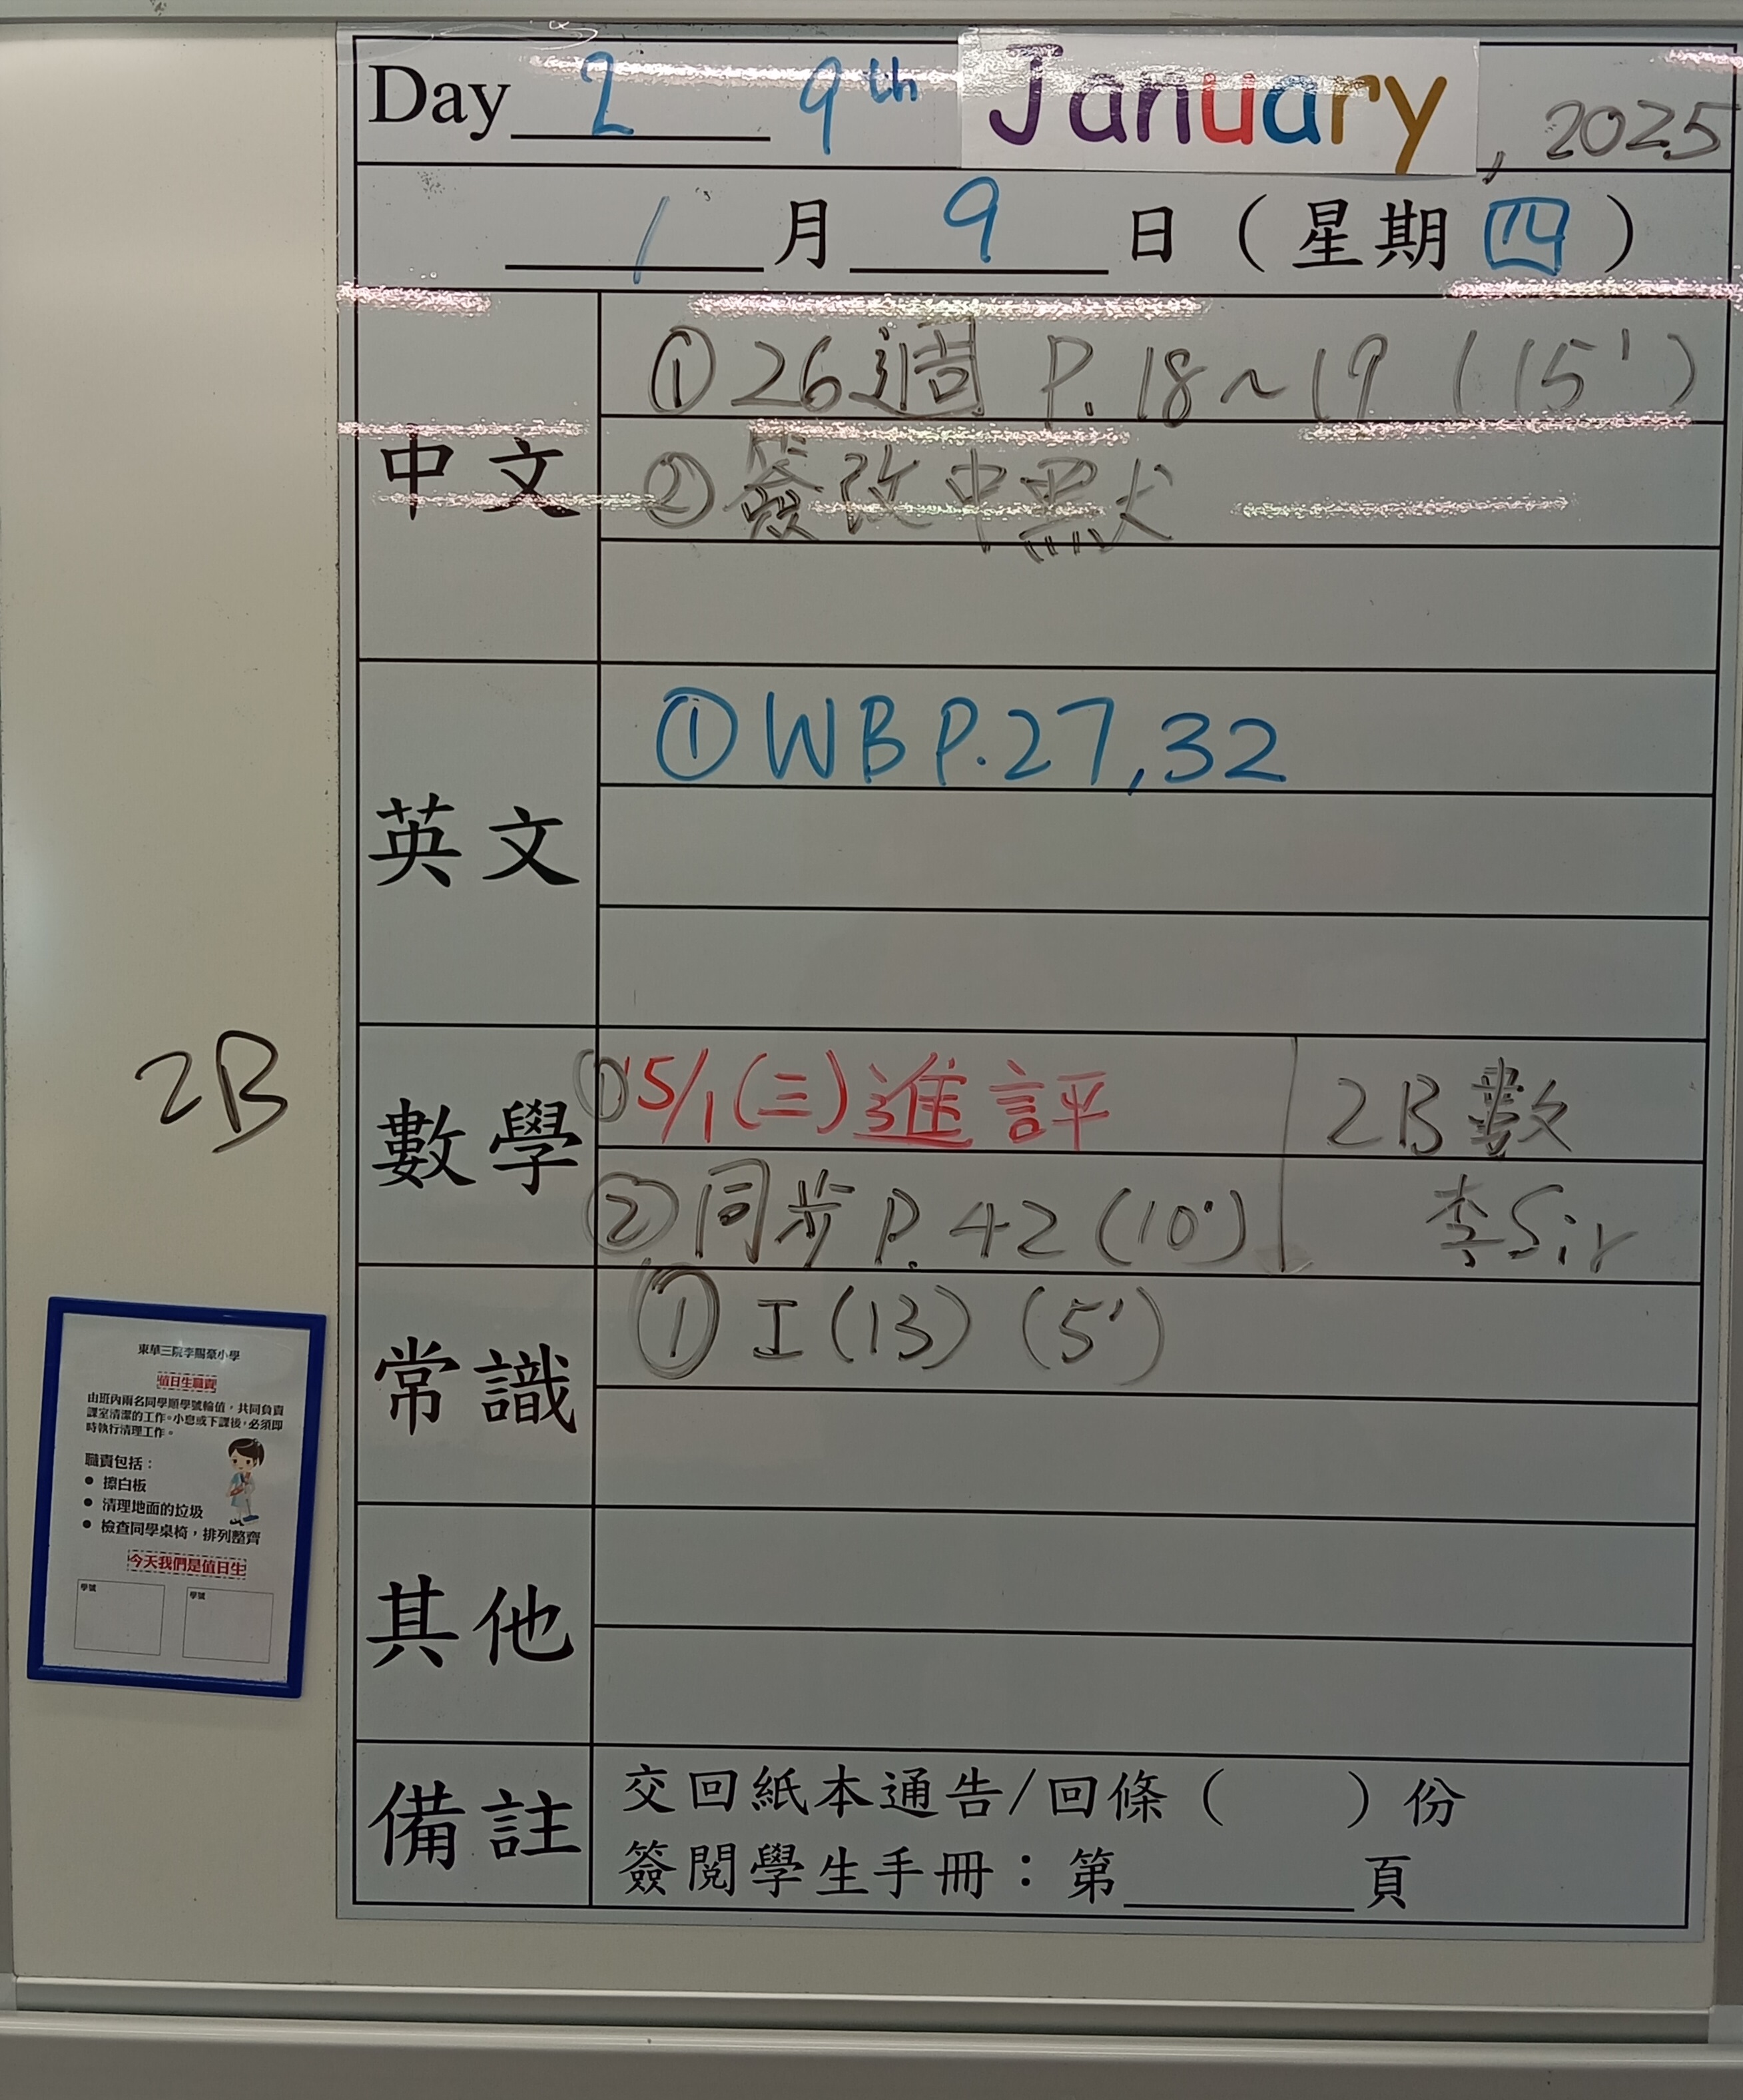 Day 2 9th January, 2025
1月9日（星期四）
中文
①26週 P.18~19 (15')
②簽改中默
英文
①WB P.27,32
2B
數學
①15/1(三)進評
2B數
②同步P.42(10')
李Sir
常識
①工(13) (5')
其他
備註
交回紙本通告/回條（ ）份
簽閱學生手冊：第 頁
東華三院李賜豪小學
值日生職責
由班內兩名同學順學號輪值，共同負責
課室清潔的工作。小息或下課後，必須即
時執行清理工作。
職責包括：
• 擦白板
• 清理地面的垃圾
• 檢查同學桌椅，排列整齊
今天我們是值日生
學號 學號